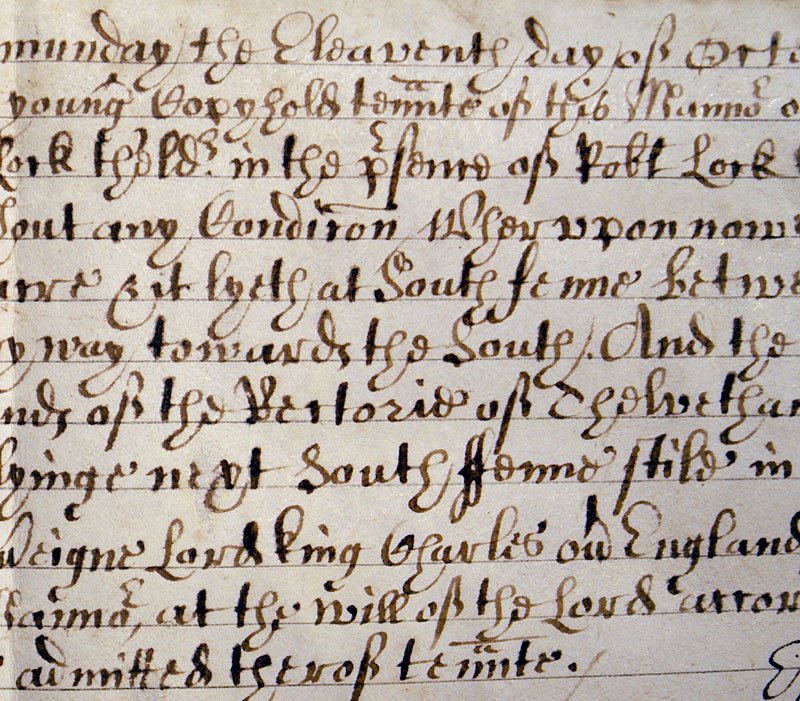 munday the Eleaventh day of Octo
young Copyhold tennte of this Manno^r o
Lock theld^r. in the p^rsence of Robt Lock
hout any Condicon Wher vpon now
acre & it lyeth at South fenne betwe
y way towards the South. And the
nds of the Rectorie of Thelvetha
lyinge next South ffenne stile in
veigne Lord king Charles ov^r England
Manno^r, at the will of the Lord accor
admitted therof tennte.